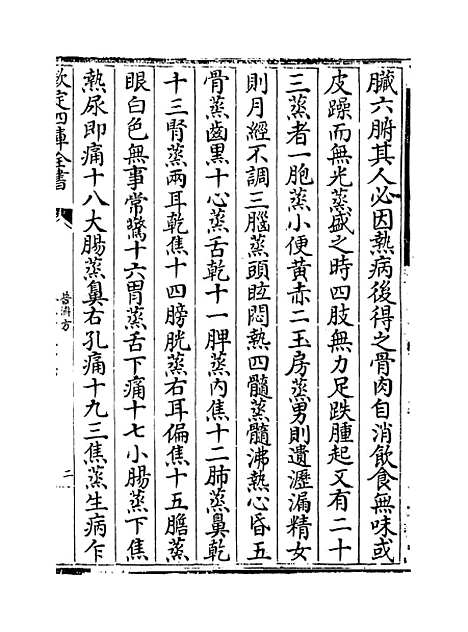 臟六腑其人必因熱病後得之骨肉自消飲食無味或
皮躁而無光蒸盛之時四肢無力足趺腫起又有二十
三蒸者一胞蒸小便黃赤二玉房蒸男則遺瀝漏精女
則月經不調三腦蒸頭眩悶熱四髓蒸髓沸熱心昏五
骨蒸齒黑十心蒸舌乾十一脾蒸内焦十二肺蒸鼻乾
十三腎蒸兩耳乾焦十四膀胱蒸右耳偏焦十五膽蒸
眼白色無事常驚十六胃蒸舌下痛十七小腸蒸下焦
熱尿即痛十八大腸蒸鼻右孔痛十九三焦蒸生病乍
欽定四庫全書
普濟方
二